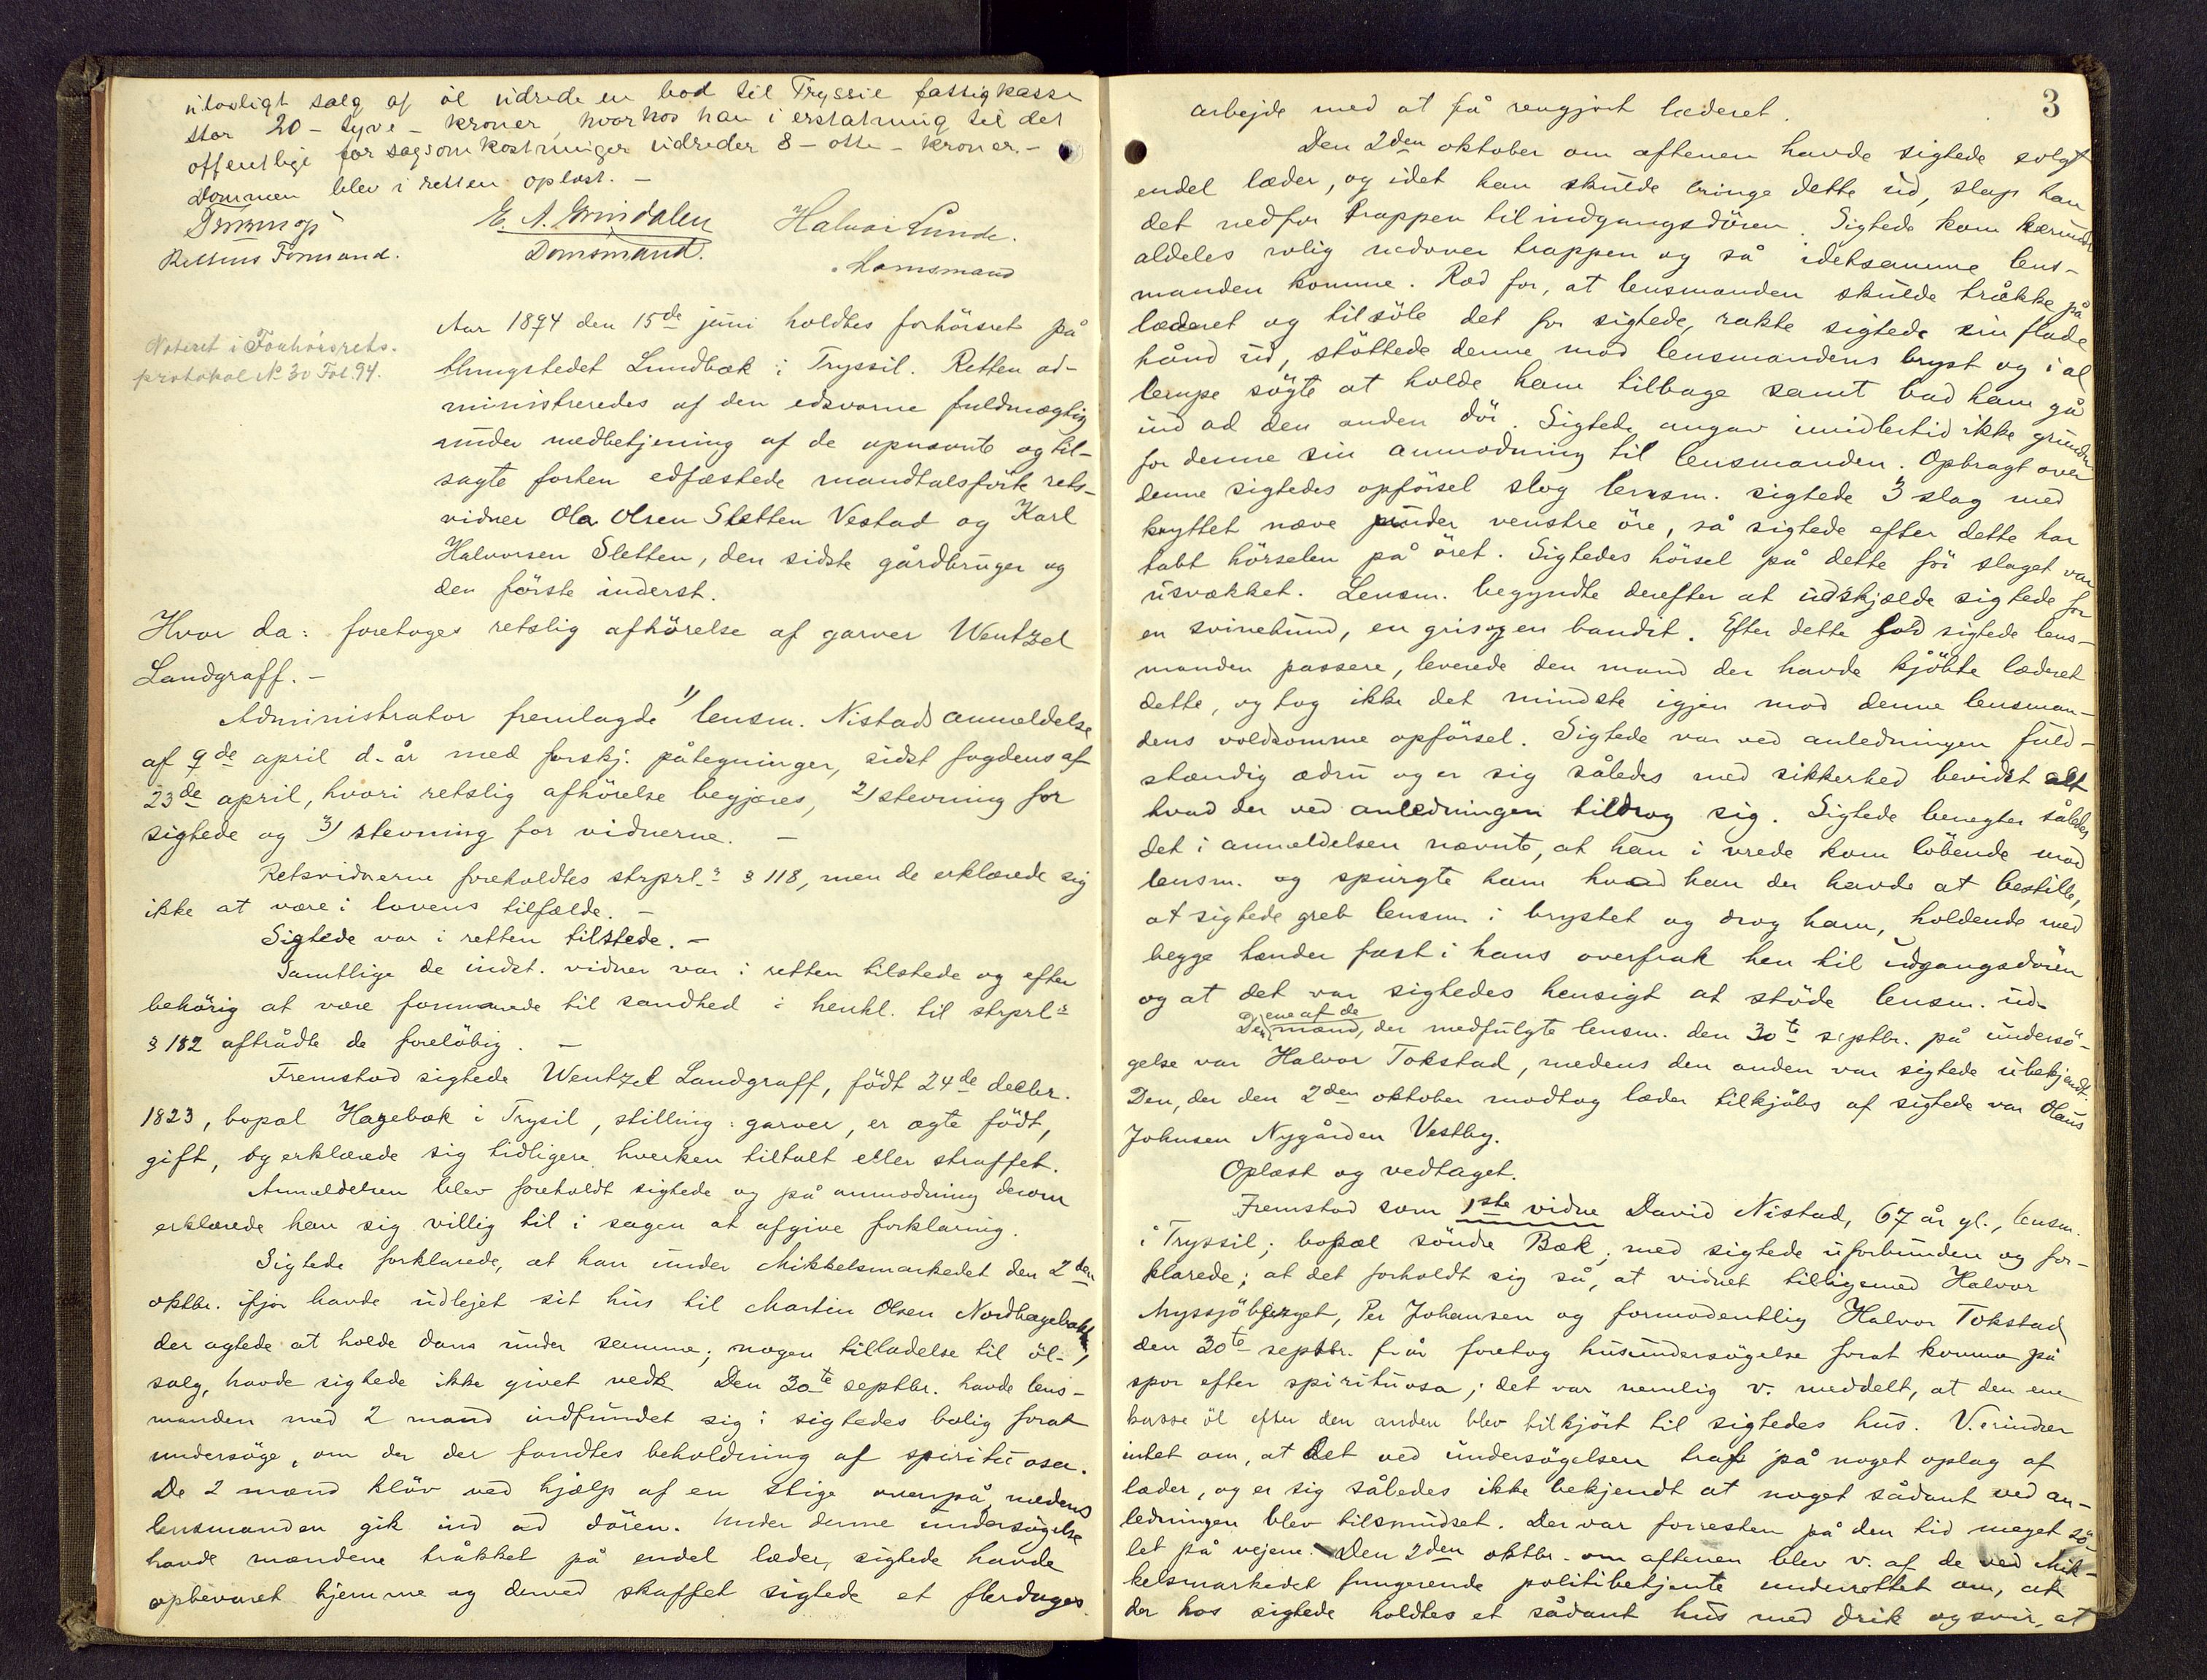 ulovligt salg af öl udrede en bod til Tryssil fattigkasse
stor 20 - tyve - kroner, hvorhos han i erstatning til det
offentlige for sagsomkostninger udreder 8 - otte - kroner. -
Dommen blev i retten oplæst. -
E. A. Grindalen Halvor Lunde.
Rettens Formand. Domsmand. Domsmand
Noteret i Forhörsrets-
protokol № 30 Fol. 94.
Aar 1894 den 15de juni holdtes forhörsret på
thingstedet Lundbæk i Tryssil. Retten ad-
ministreredes af den edsvorne fuldmægtig
under medbetjening af de opnævnte og til-
sagte forhen edfæstede mandtalsförte rets-
vidner Ola Olsen Sletten Vestad og Karl
Halvorsen Sletten, den sidste gårdbruger og
den förste inderst.
Hvor da: foretoges retslig afhörelse af garver Wentzel
Landgraff. -
Administrator fremlagde 1) lensm. Nistads anmeldelse
af 9de april d. år med forskj. påtegninger, sidst fogdens af
23de april, hvori retslig afhörelse begjæres, 2) stevning for
sigtede og 3) stevning for vidnerne. -
Retsvidnerne foreholdtes strprl.s § 118, men de erklærede sig
ikke at være i lovens tilfælde. -
Sigtede var i retten tilstede. -
Samtlige de indst. vidner var i retten tilstede og efter
behörig at være formanede til sandhed i henhl. til strprls
§ 182 aftrådte de foreløbig. -
Fremstod sigtede Wentzel Landgraff, födt 24de decbr.
1823, bopæl Hagebæk i Trysil, stilling: garver, er ægte födt,
gift, og erklærede sig tidligere hverken tiltalt eller straffet.
Anmeldelsen blev foreholdt sigtede og på anmodning derom
erklærede han sig villig til i sagen at afgive forklaring.
Sigtede forklarede, at han under Mikkelsmarkedet den 2den
oktbr. ifjor havde udlejet sit hus til Martin Olsen Nordhagebakk,
der agtede at holde dans under samme; nogen tilladelse til öl-
salg, havde sigtede ikke givet vedk. Den 30te septbr. havde lens-
manden med 2 mand indfundet sig i sigtedes bolig forat
undersöge, om der der fandtes beholdning af spirituosa.
De 2 mænd klöv ved hjælp af en stige ovenpå, medens
lensmanden gik ind ad dören. Under denne undersögelse
havde mændene tråkket på endel læder, sigtede havde
opbevaret hjemme og derved skaffet sigtede et flerdages
3
arbejde med at få rengjort læderet.
Den 2den oktober om aftenen havde sigtede solgt
endel læder, og idet han skulde bringe dette ud, slap han
det nedfor trappen til indgangsdören. Sigtede kom
aldeles rolig nedover trappen og så idetsamme lens-
manden komme. Ræd for, at lensmanden skulde tråkke på
læderet og tilsöle det for sigtede, rakte sigtede sin flade
hånd ud, stöttede denne mod lensmandens bryst og i al
lempe sögte at holde ham tilbage samt bad ham gå
ind ad den anden dör. Sigtede angav imidlertid ikke grunden
for denne sin anmodning til lensmanden. Opbragt over
denne sigtedes opförsel slog lensm. sigtede 3 slag med
knyttet næve under venstre öre, så sigtede efter dette har
tabt hörselen på öret. Sigtedes hörsel på dette för slaget var
usvækket. Lensm. begyndte derefter at udskjælde sigtede for
en svinehund, en gris og en bandit. Efter dette lod sigtede lens-
manden passere, leverede den mand der havde kjöbte læderet
dette, og tog ikke det mindste igjen mod denne lensman-
dens voldsomme opförsel. Sigtede var ved anledningen fuld-
stændig ædru og er sig således med sikkerhed bevidst alt
hvad der ved anledningen tildrog sig. Sigtede benegter således
det i anmeldelsen nævnte, at han i vrede kom löbende mod
lensm. og spurgte ham hvad han der havde at bestille,
at sigtede greb lensm i brystet og drog ham, holdende med
begge hænder fast i hans overfrak hen til udgangsdören
og at det var sigtedes hensigt at stöde lensm. ud.
Den ene af de mænd, der medfulgte lensm. den 30te septbr. på undersö-
gelse var Halvor Tokstad, medens den anden var sigtede ubekjendt.
Den, der den 2den oktober modtog læder tilkjöbs af sigtede var Olaus
Johnsen Nygården Vestby.
Oplæst og vedtaget.
Fremstod som 1ste vidne David Nistad, 67 år gl., lensm.
i Tryssil; bopæl söndre Bæk, med sigtede uforbunden og for-
klarede; at det forholdt sig så, at vidnet tilligemed Halvor
Nyssjöberget, Per Johansen og formodentlig Halvor Tokstad
den 30te septbr. f. år foretog husundersögelse forat komme på
spor efter spirituosa; det var nemlig v. meddelt, at den ene
kasse öl efter den anden blev tilkjört til sigtedes hus. V. erindrer
intet om, at det ved undersögelsen traf på noget oplag af
læder, og er sig således ikke bekjendt at noget sådant ved an-
ledningen blev tilsmudset. Der var forresten på den tid meget sö-
let på vejene. Den 2den oktbr. om aftenen blev v. af de ved Mik-
kelsmarkedet fungerende politibetjente underrettet om, at
der hos sigtede holdtes et sådant hus med drik og svir, at